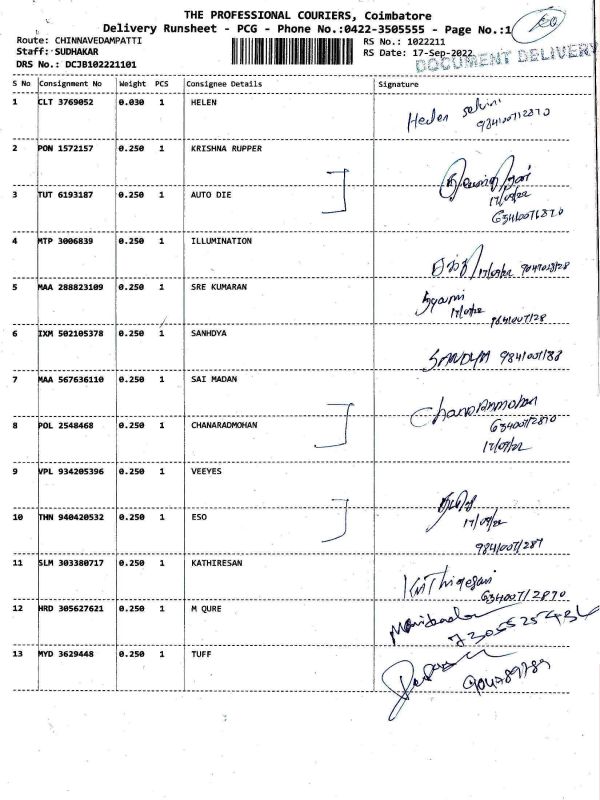 THE PROFESSIONAL COURIERS, Coimbatore
Delivery Runsheet - PCG - Phone No.:0422-3505555 - Page No.:1
Route: CHINNAVEDAMPATTI
RS No.: 1022211
Staff: SUDHAKAR
RS Date: 17-Sep-2022
DRS No.: DCJB102221101
DOCUMENT DELIVERY
S No Consignment No Weight PCS Consignee Details Signature
1 CLT 3769052 0.030 1 HELEN
Helen Selvin
2 PON 1572157 0.250 1 KRISHNA RUPPER
3 TUT 6193187 0.250 1 AUTO DIE
17/09/22
4 MTP 3006839 0.250 1 ILLUMINATION
17/09/22
5 MAA 288823109 0.250 1 SRE KUMARAN
17/09/22
6 IXM 502105378 0.250 1 SANHDYA
SANDYA
7 MAA 567636110 0.250 1 SAI MADAN
8 POL 2548468 0.250 1 CHANARADMOHAN
Chanarammohan
17/09/22
9 VPL 934205396 0.250 1 VEEYES
10 THN 940420532 0.250 1 ESO
17/09/22
11 SLM 303380717 0.250 1 KATHIRESAN
Kathiresan
12 HRD 305627621 0.250 1 M QURE
13 MYD 3629448 0.250 1 TUFF